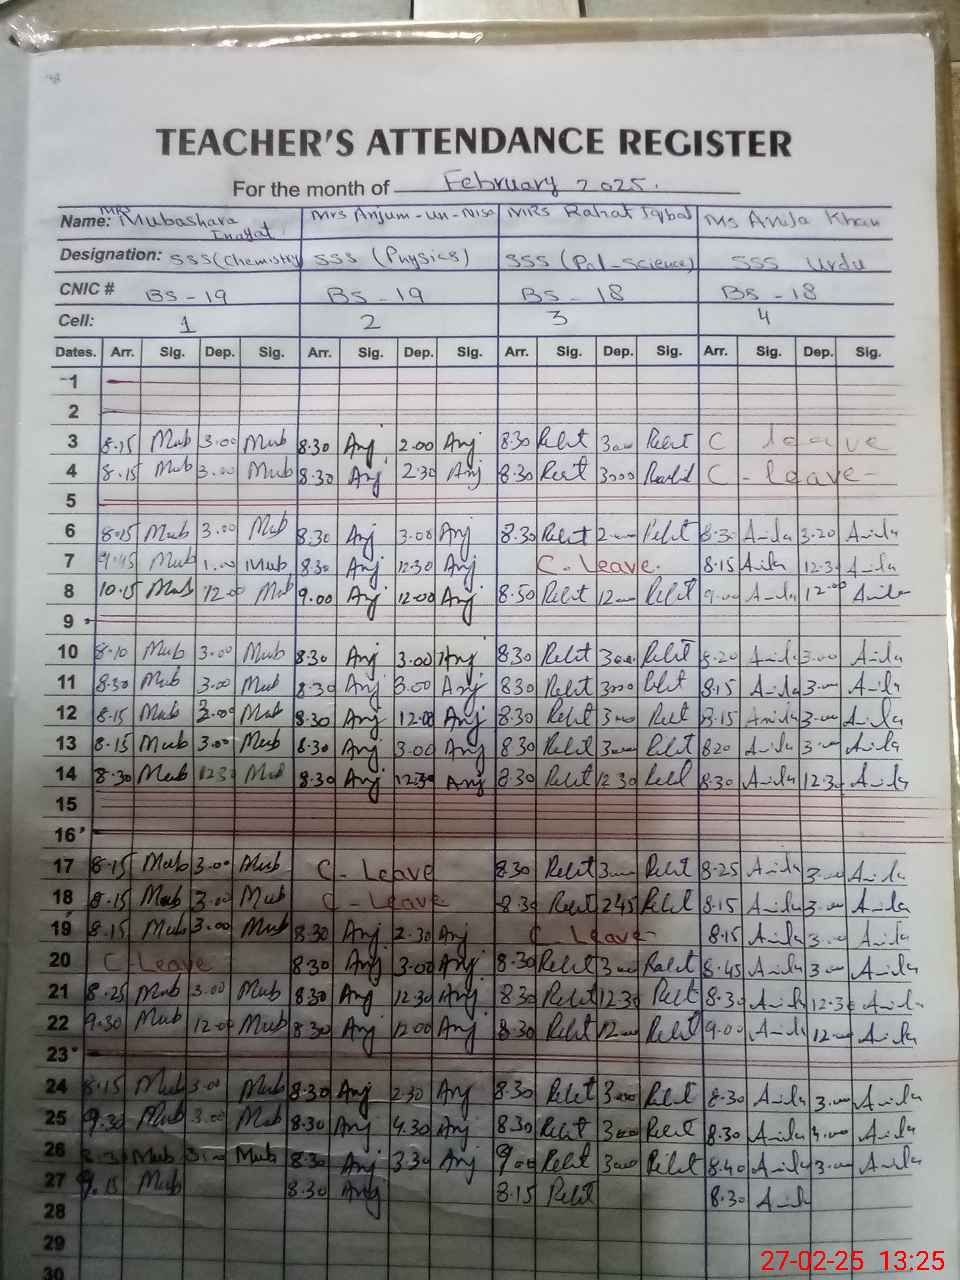 TEACHER'S ATTENDANCE REGISTER
For the month of February 2025.
Name: Mrs Mubashara Inayat Mrs Anjum-un-Nisa MRS Rahat Iqbal Ms Anila Khan
Designation: SSS (Chemistry) SSS (Physics) SSS (Pol-Science) SSS Urdu
CNIC # BS-19 BS-19 BS-18 BS-18
Cell: 1 2 3 4
Dates. Arr. Sig. Dep. Sig. Arr. Sig. Dep. Sig. Arr. Sig. Dep. Sig. Arr. Sig. Dep. Sig.
1
2
3 8.15 Mub 3.00 Mub 8.30 Anj 2.00 Anj 8.30 3.00 C leave
4 8.15 Mub 3.00 Mub 8.30 Anj 2.30 Anj 8.30 3.00 C-leave-
5
6 Mub 3.00 Mub 8.30 Anj 3.00 Anj 8.30 8.30 Anila 3.20 Anila
7 9.45 Mub 1.00 Mub 8.30 Anj 12.30 Anj C-Leave. 8.15 Anila 12.30 Anila
8 10.15 Mub 12.00 Mub 9.00 Anj 12.00 Anj 8.50 12.00 9.00 Anila 12.00 Anila
9
10 8.10 Mub 3.00 Mub 8.30 Anj 3.00 Anj 8.30 3.00 8.20 Anila 3.00 Anila
11 8.30 Mub 3.00 Mub 8.30 Anj 3.00 Anj 8.30 3.00 8.15 Anila 3.00 Anila
12 8.15 Mub 3.00 Mub 8.30 Anj 12.00 Anj 8.30 3.00 8.15 Anila 3.00 Anila
13 8.15 Mub 3.00 Mub 8.30 Anj 3.00 Anj 8.30 3.00 8.20 Anila 3.00 Anila
14 8.30 Mub 12.30 Mub 8.30 Anj 12.30 Anj 8.30 12.30 8.30 Anila 12.30 Anila
15
16
17 8.15 Mub 3.00 Mub C-Leave 8.30 3.00 8.25 Anila 3.00 Anila
18 8.15 Mub 3.00 Mub C-Leave 8.30 2.45 8.15 Anila 3.00 Anila
19 8.15 Mub 3.00 Mub 8.30 Anj 2.30 Anj C-Leave- 8.15 Anila 3.00 Anila
20 C-Leave 8.30 Anj 3.00 Anj 8.30 3.00 8.45 Anila 3.00 Anila
21 8.25 Mub 3.00 Mub 8.30 Anj 12.30 Anj 8.30 12.30 8.30 Anila 12.30 Anila
22 9.30 Mub 12.00 Mub 8.30 Anj 12.00 Anj 8.30 12.00 9.00 Anila 12.00 Anila
23
24 8.15 Mub 3.00 Mub 8.30 Anj 2.30 Anj 8.30 3.00 8.30 Anila 3.00 Anila
25 9.30 Mub 3.00 Mub 8.30 Anj 4.30 Anj 8.30 3.00 8.30 Anila Anila
26 Mub Mub 8.30 Anj 3.30 Anj 9.00 3.00 8.40 Anila 3.00 Anila
27 9.15 Mub 8.30 Anj 8.15 8.30 Anila
28
29
30
27-02-25 13:25